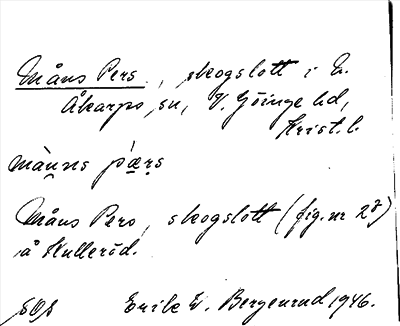 Måns Pers, skogslott i N.
Åkarps sn, V. Göinge hd,
Krist. l.
màu̯ns pæ̀ṛs
Måns Pers, skogslott (fig. nr 28)
å Hulleröd.
SOS Erik W. Bergenrud 1946.